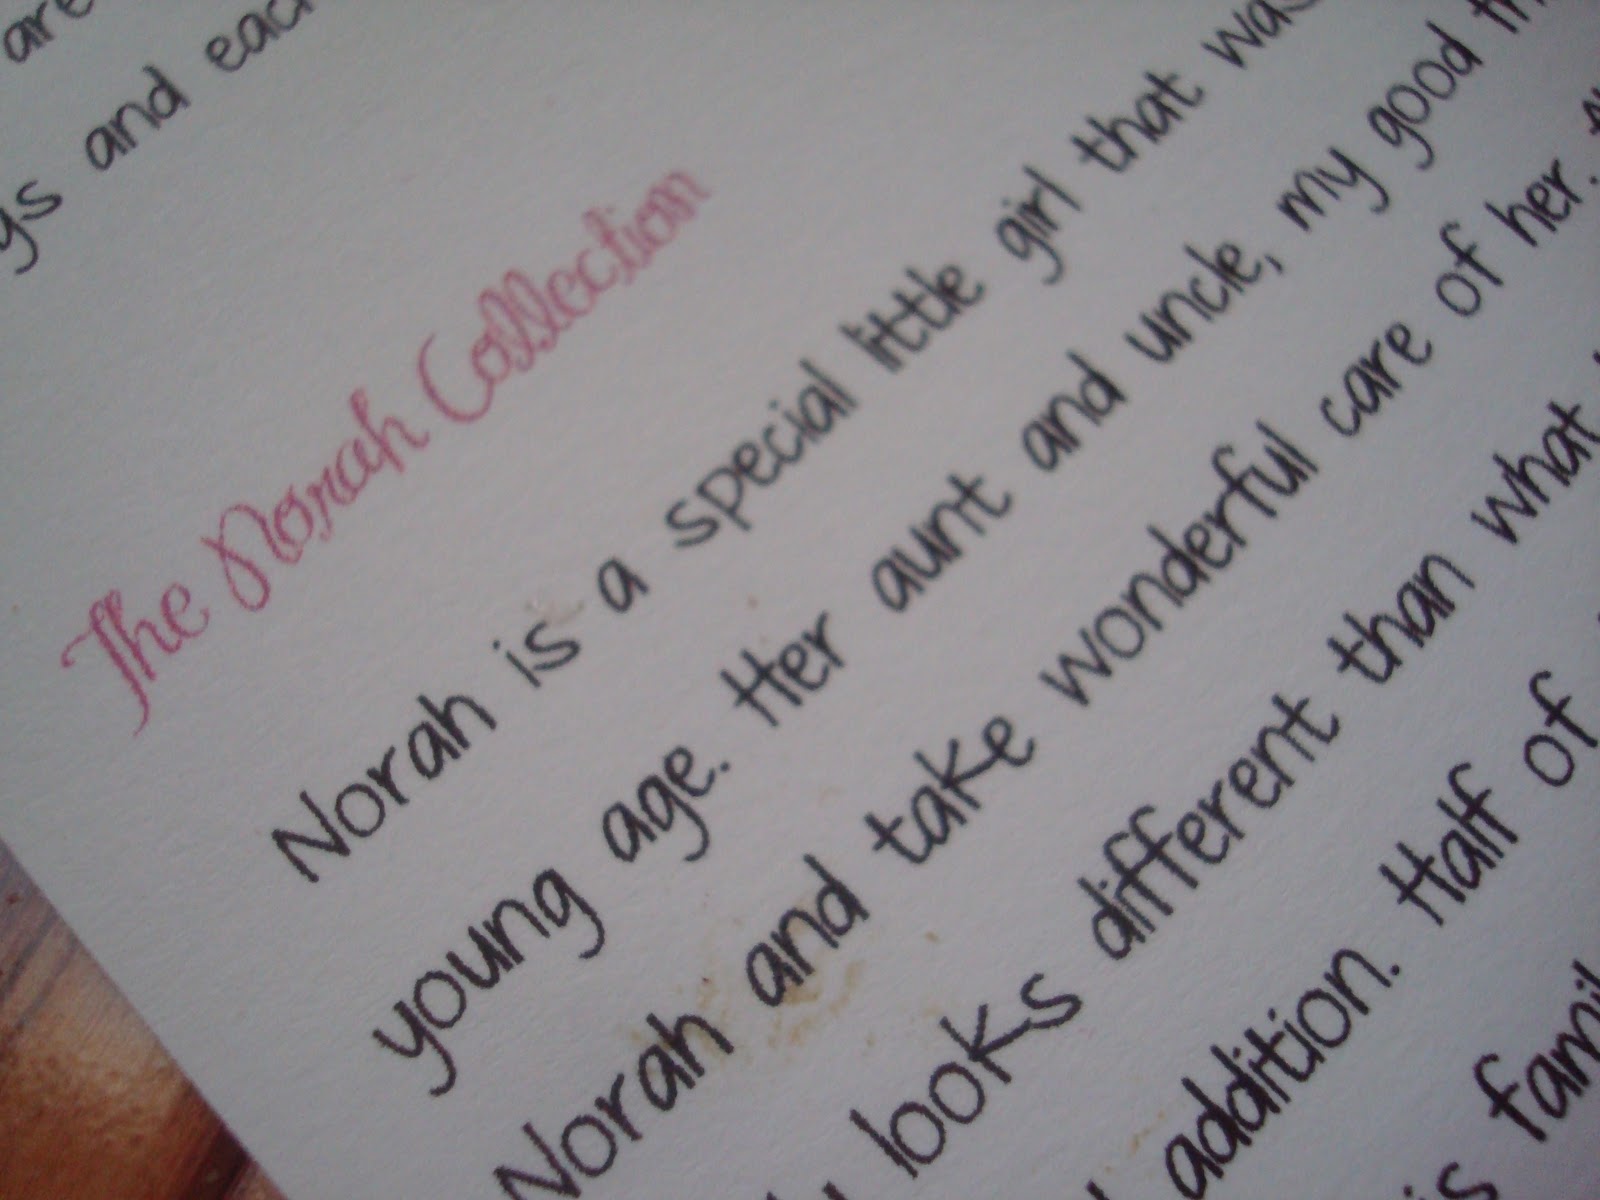 are
gs and each
The Norah Collection
Norah is a special little girl that was
young age. Her aunt and uncle, my good
Norah and take wonderful care of her.
looks different than what
addition. Half of
is